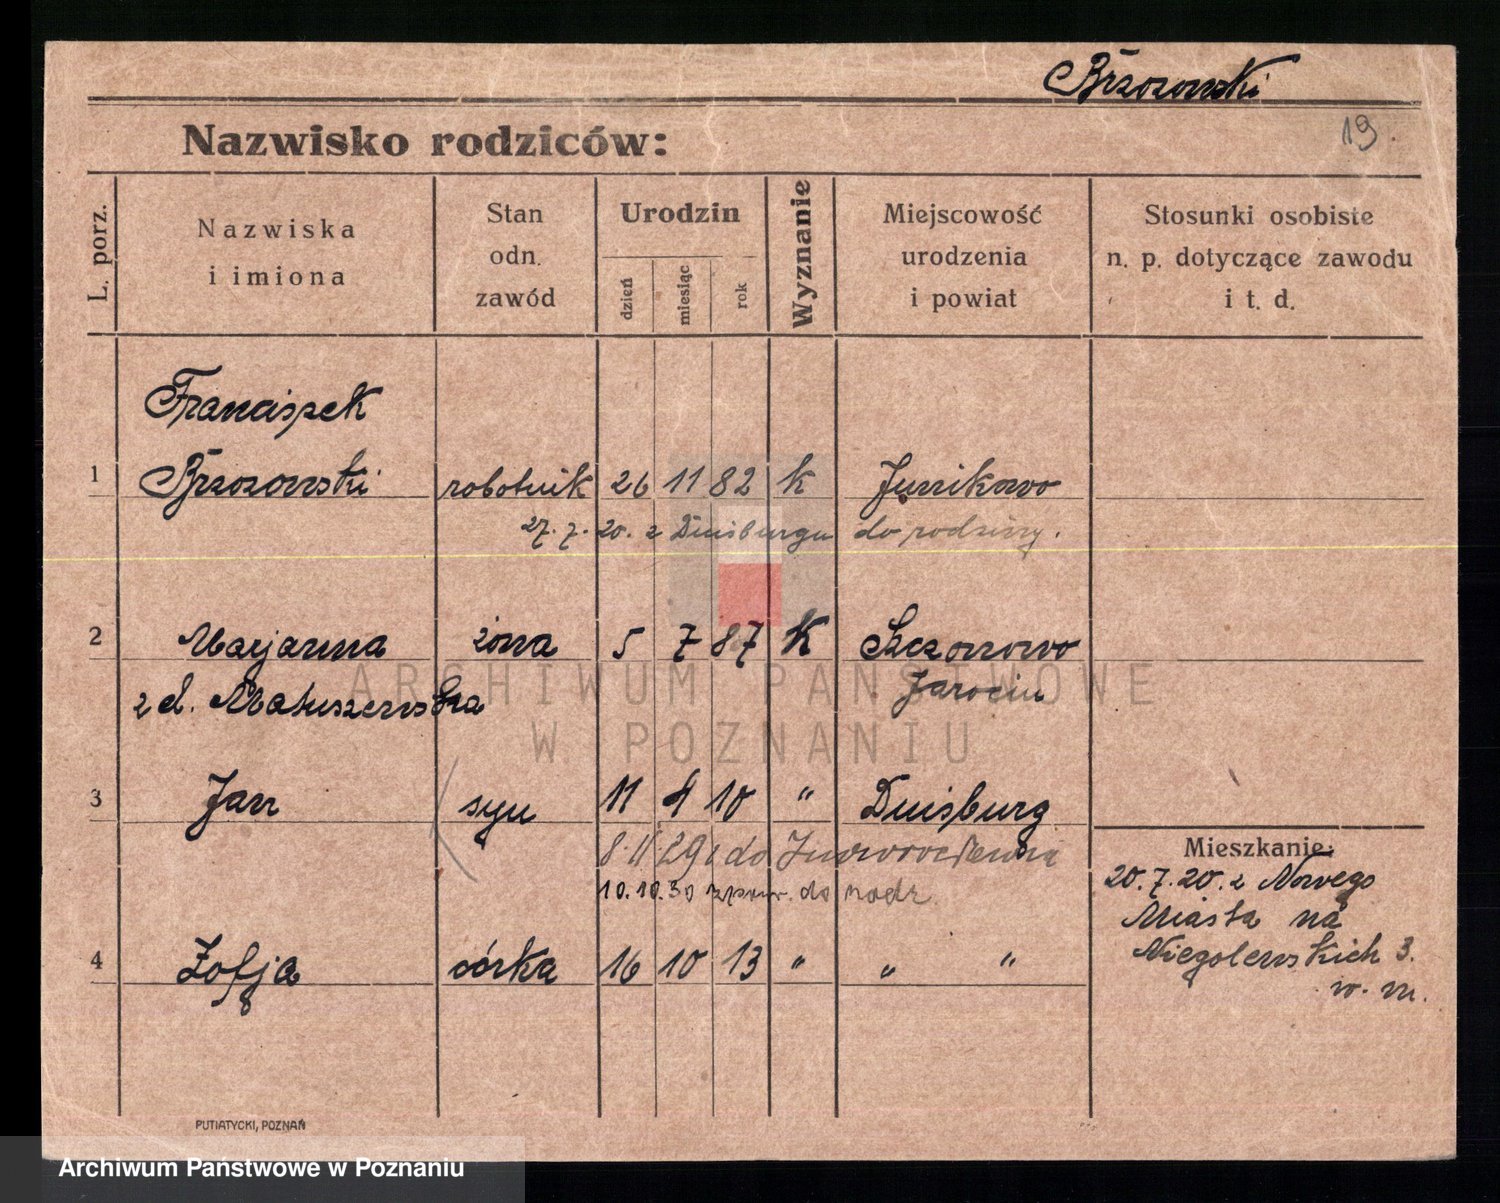 Brzozowski
19.
Nazwisko rodziców:
L. porz.
Nazwiska
i imiona
Stan
odn.
zawód
Urodzin
dzień
miesiąc
rok
Wyznanie
Miejscowość
urodzenia
i powiat
Stosunki osobiste
n. p. dotyczące zawodu
i t. d.
Franciszek
1 Brzozowski robotnik 26 11 82 k Junikowo
27. 7. 20. z Duisburga do rodziny.
2 Marjanna żona 5 7 87 K Szczonowo
z d. Matuszewska Jarocin
3 Jan syn 11 4 10 " Duisburg
8. 11. 29 do Inowrocławia
10.10.30 do rodz.
4 Zofja córka 16 10 13 " " "
Mieszkanie:
20. 7. 20. z Nowego
Miasta na
Niegolewskich 3.
w. m.
PUTIATYCKI, POZNAŃ
ARCHIWUM PAŃSTWOWE
W POZNANIU
Archiwum Państwowe w Poznaniu